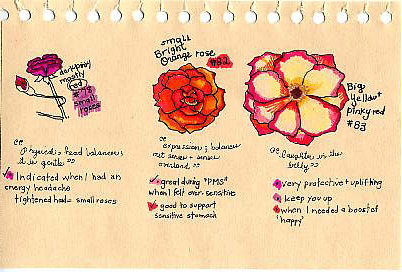 dark pink
mostly
red
small
roses
"Physical, head balancer;
it is gentle"
Indicated when I had an
energy headache
tightened head = small roses
small
Bright
Orange rose
#82
"expression; balances
out sense + sense
overload"
great during "PMS"
when I felt over-sensitive
good to support
sensitive stomach
Big
yellow +
pinky red
#83
"laughter in the
belly"
very protective + uplifting
keep you up
when I needed a boost of
'happy'